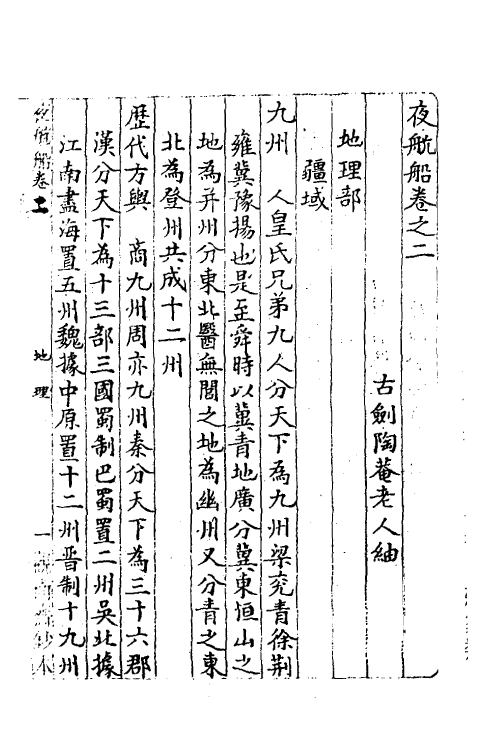 夜航船卷之二
古劍陶菴老人紬
地理部
疆域
九州　人皇氏兄弟九人分天下為九州梁兖青徐荆
雍冀豫揚也是至舜時以冀青地廣分冀東恒山之
地為并州分東北醫無閭之地為幽州又分青之東
北為登州共成十二州
歷代方輿　商九州周亦九州秦分天下為三十六郡
漢分天下為十三部三國蜀制巴蜀置二州吳北據
江南盡海置五州魏據中原置十二州晋制十九州
夜航船卷二
地理
一
鈔本